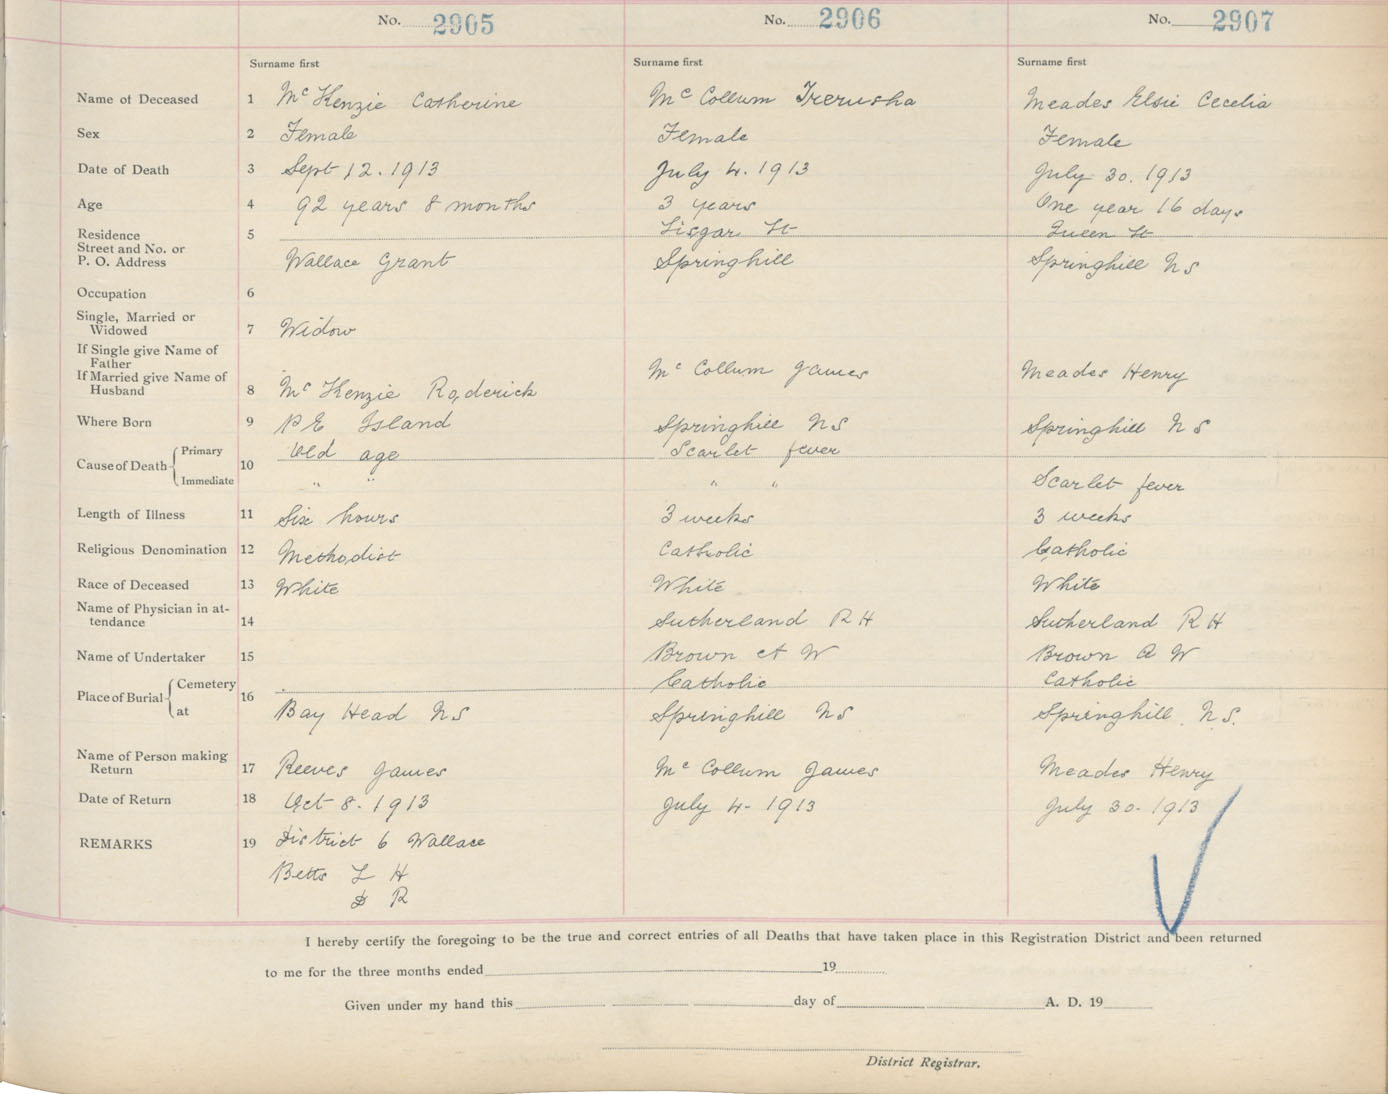 No. 2905 No. 2906 No. 2907
Surname first Surname first Surname first
Name of Deceased 1 Mc Kenzie Catherine Mc Collum Irerusha Meades Elsie Cecelia
Sex 2 Female Female Female
Date of Death 3 Sept 12. 1913 July 4. 1913 July 30. 1913
Age 4 92 years 8 months 3 years One year 16 days
Residence 5 Lisgar St Queen St
Street and No. or
P. O. Address Wallace Grant Springhill Springhill NS
Occupation 6
Single, Married or
Widowed 7 Widow
If Single give Name of
Father Mc Collum James Meades Henry
If Married give Name of
Husband 8 Mc Kenzie Roderick
Where Born 9 P E Island Springhill NS Springhill NS
Cause of Death 10 Primary Old age Scarlet fever
Immediate " " " " Scarlet fever
Length of Illness 11 Six hours 3 weeks 3 weeks
Religious Denomination 12 Methodist Catholic Catholic
Race of Deceased 13 White White White
Name of Physician in at-
tendance 14 Sutherland R H Sutherland R H
Name of Undertaker 15 Brown A W Brown A W
Place of Burial 16 Cemetery Catholic Catholic
at Bay Head NS Springhill NS Springhill N.S.
Name of Person making
Return 17 Reeves James Mc Collum James Meades Henry
Date of Return 18 Oct 8. 1913 July 4- 1913 July 30- 1913
REMARKS 19 District 6 Wallace
Betts L H
D R
I hereby certify the foregoing to be the true and correct entries of all Deaths that have taken place in this Registration District and been returned
to me for the three months ended 19
Given under my hand this day of A. D. 19
District Registrar.